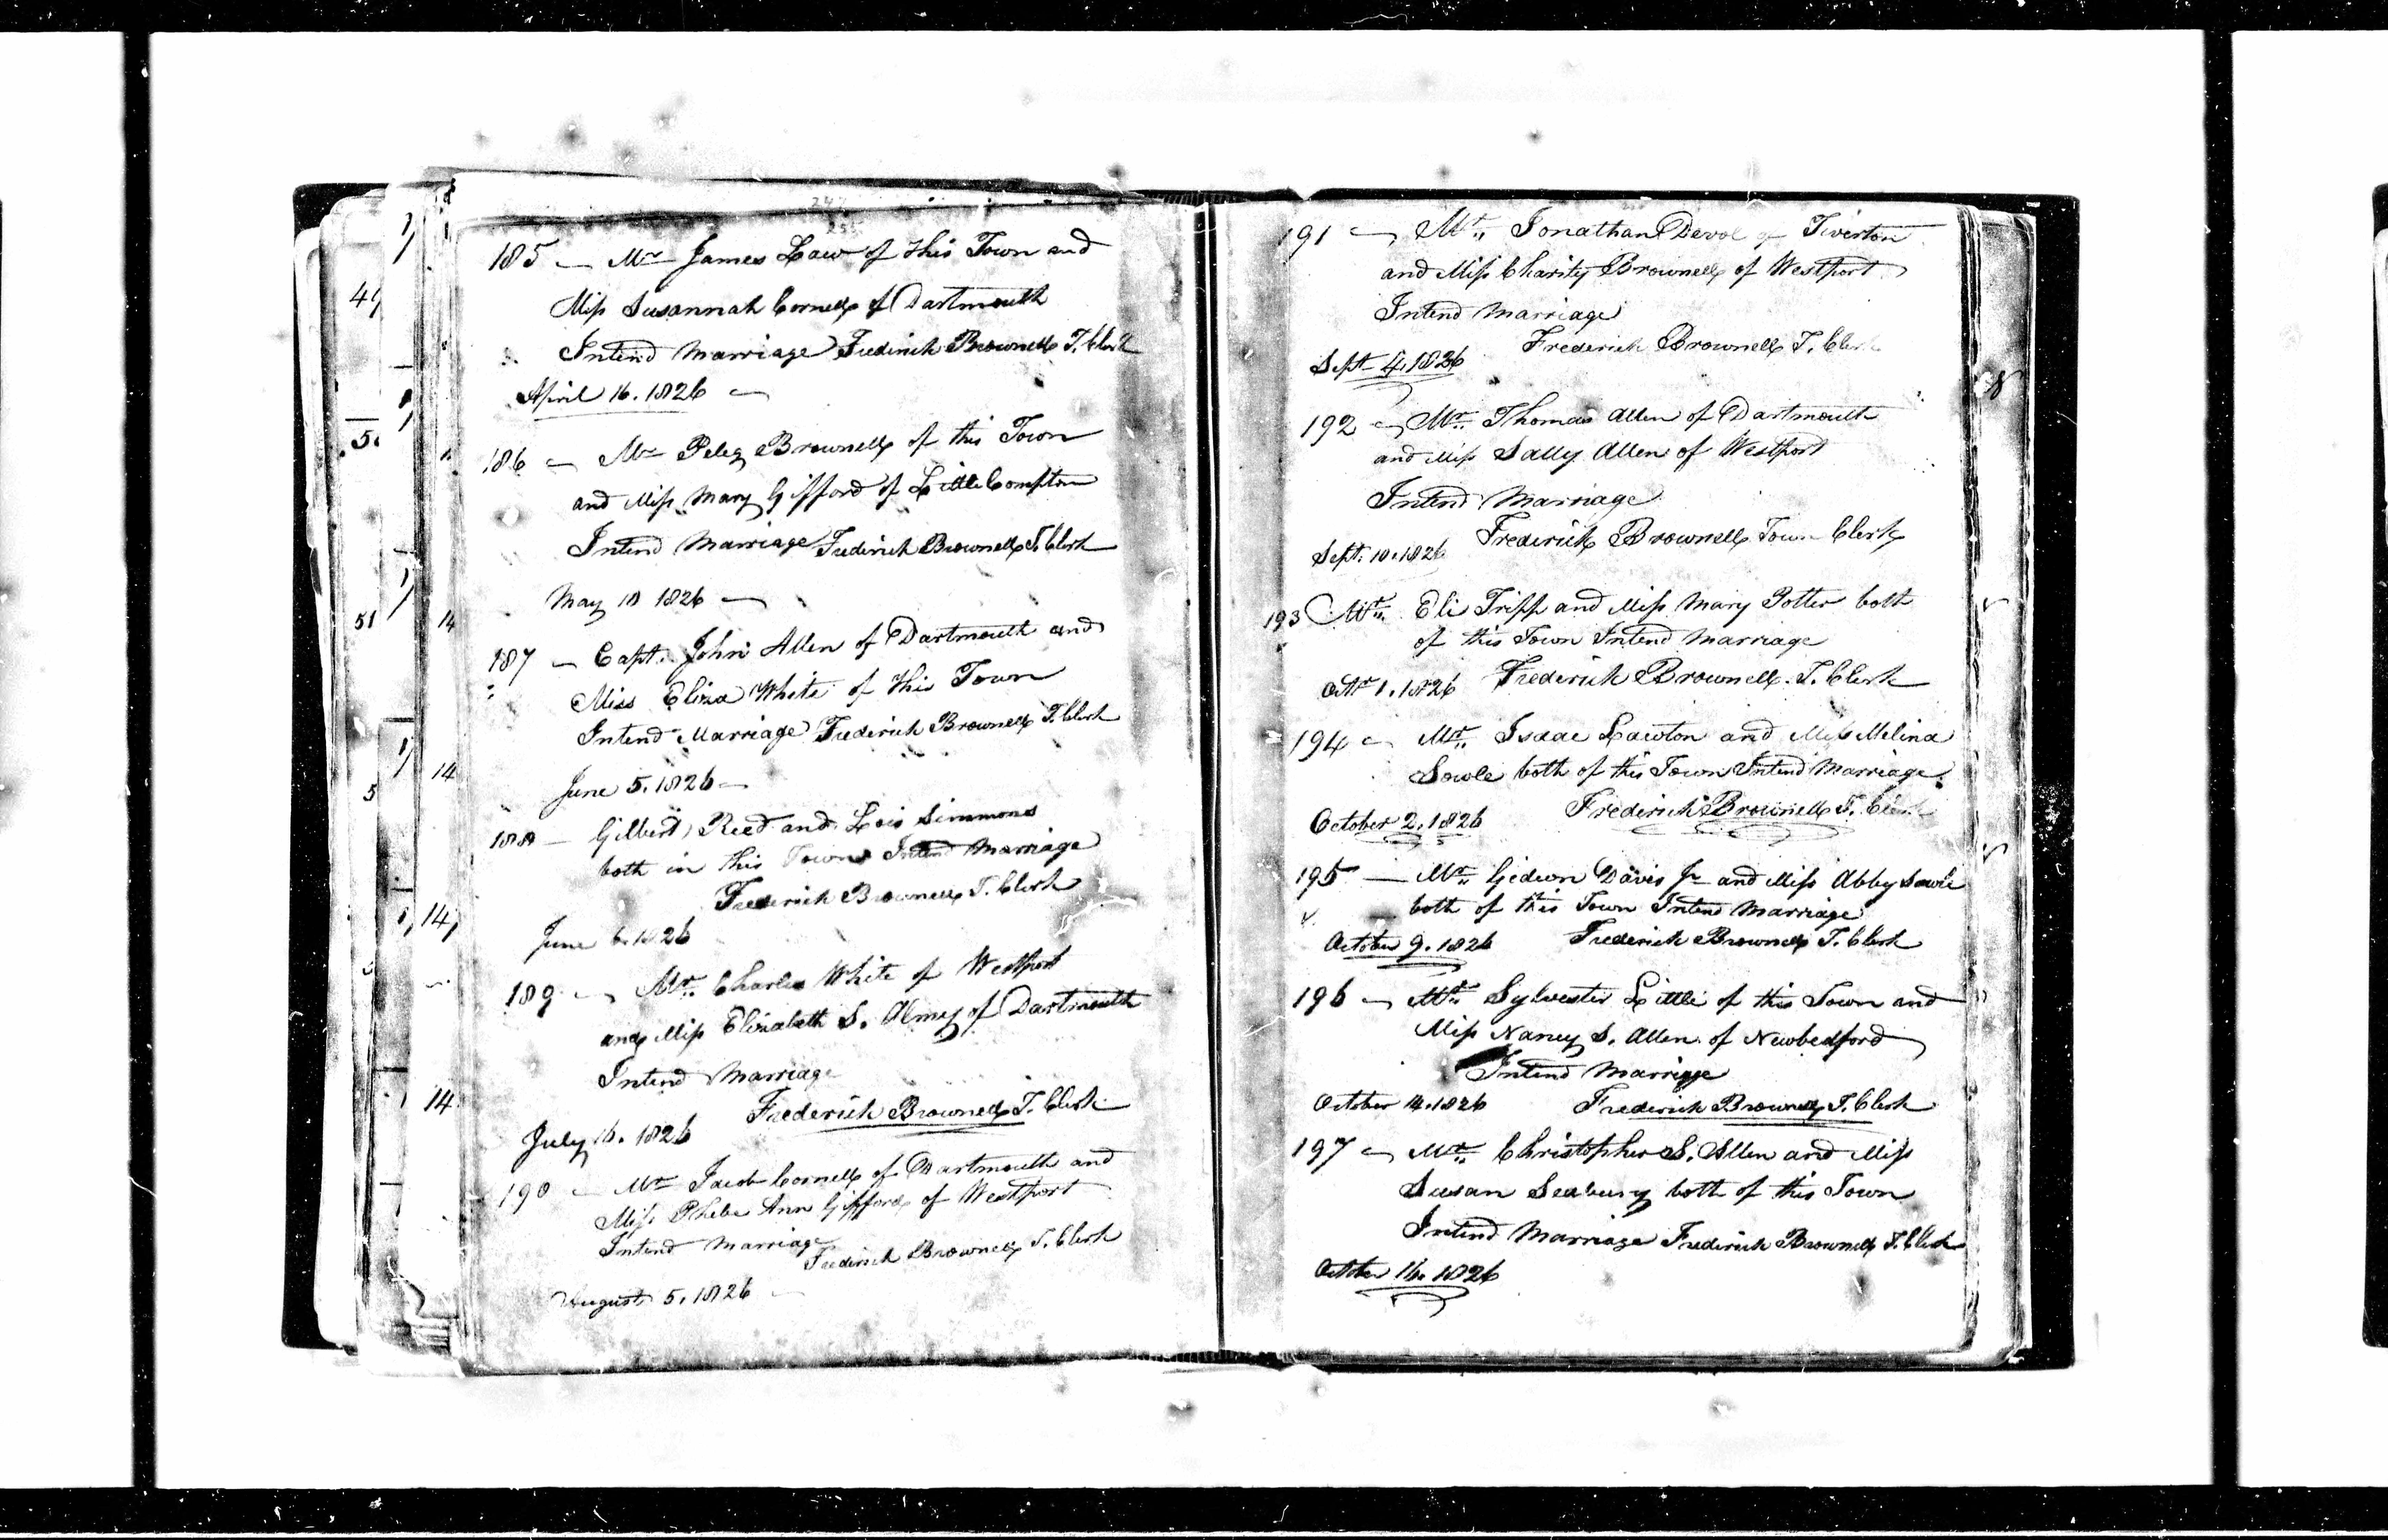 185 — Mr James Law of this Town and
Miss Susannah Cornell of Dartmouth
Intend Marriage Frederick Brownell T. Clerk
April 16. 1826 —
186 — Mr Peleg Brownell of this Town
and Miss Mary Gifford of Little Compton
Intend Marriage Frederick Brownell T. Clerk
May 18 1826 —
187 — Capt. John Allen of Dartmouth and
Miss Eliza White of this Town
Intend Marriage Frederick Brownell T. Clerk
June 5. 1826 —
188 — Gilbert Reed and Lois Simmons
both in this Town Intend Marriage
Frederick Brownell T. Clerk
June 6. 1826
189 — Mr. Charles White of Westport
and Miss Elizabeth S. Almy of Dartmouth
Intend Marriage
Frederick Brownell T. Clerk
July 16. 1826
190 — Mr Jacob Cornell of Dartmouth and
Miss Phebe Ann Gifford of Westport
Intend Marriage
Frederick Brownell T. Clerk
August 5. 1826
191 — Mr. Jonathan Devol of Tiverton
and Miss Charity Brownell of Westport
Intend Marriage
Frederick Brownell T. Clerk
Sept 4. 1826
192 — Mr. Thomas Allen of Dartmouth
and Miss Sally Allen of Westport
Intend Marriage
Frederick Brownell Town Clerk
Sept. 10. 1826
193 Mr. Eli Tripp and Miss Mary Potter both
of this Town Intend Marriage
Octr 1. 1826 Frederick Brownell T. Clerk
194 — Mr. Isaac Lawton and Miss Melina
Sowle both of this Town Intend Marriage
October 2. 1826 Frederick Brownell T. Clerk
195 — Mr. Gideon Davis Jr and Miss Abby Sowle
both of this Town Intend Marriage
October 9. 1826 Frederick Brownell T. Clerk
196 — Mr. Sylvester Little of this Town and
Miss Nancy S. Allen of Newbedford
Intend Marriage
October 14. 1826 Frederick Brownell T. Clerk
197 — Mr. Christopher S. Allen and Miss
Susan Seabury both of this Town
Intend Marriage Frederick Brownell T. Clerk
October 16. 1826